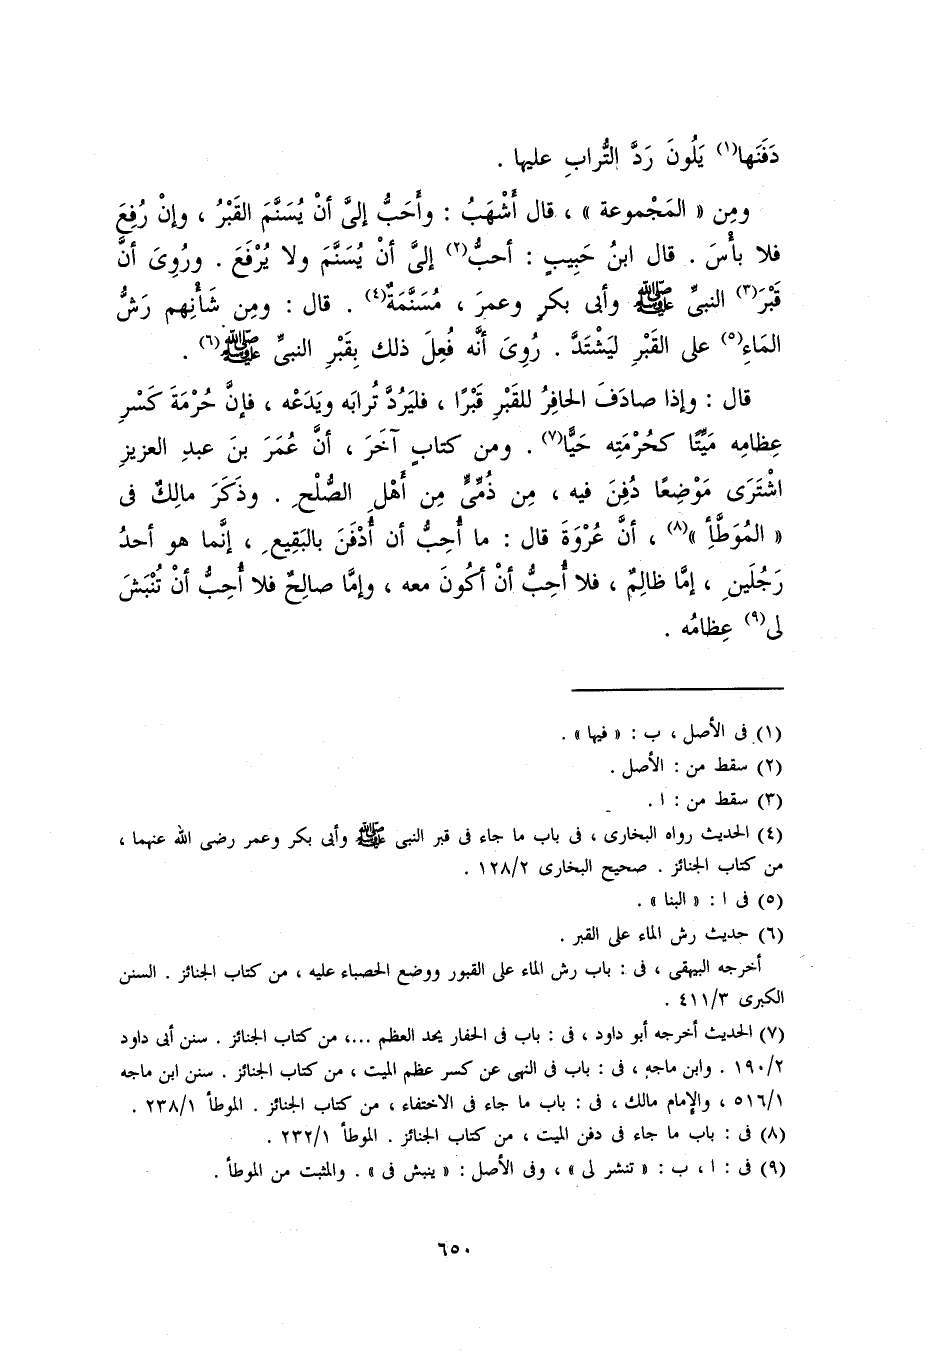 دَفَنَها(١) يَلُونَ رَدَّ التُّرابِ عليها .
ومِن « المَجْموعة » ، قال أَشْهَبُ : وأَحَبُّ إلىَّ أنْ يُسَنَّمَ القَبْرُ ، وإنْ رُفِعَ
فلا بأْسَ . قال ابنُ حَبِيبٍ : أحبُّ(٢) إلىَّ أنْ يُسَنَّمَ ولا يُرْفَعَ . ورُوِىَ أنَّ
قَبْرَ(٣) النبىِّ ﷺ وأبى بكرٍ وعمرَ ، مُسَنَّمَةٌ(٤) . قال : ومِن شَأْنِهم رَشُّ
المَاءِ(٥) على القَبْرِ لِيَشْتَدَّ . رُوِىَ أنَّه فُعِلَ ذلك بِقَبْرِ النبىِّ ﷺ(٦) .
قال : وإذا صادَفَ الحافِرُ للقَبْرِ قَبْرًا ، فليَرُدَّ تُرابَه ويَدَعْه ، فإنَّ حُرْمَةَ كَسْرِ
عِظامِه مَيِّتًا كحُرْمَتِه حَيًّا(٧) . ومن كتابٍ آخَرَ ، أنَّ عُمَرَ بنَ عبدِ العزيزِ
اشْتَرَى مَوْضِعًا دُفِنَ فيه ، مِن ذُمِّىٍّ مِن أَهْلِ الصُّلْحِ . وذَكَرَ مالِكٌ فى
« المُوَطَّأِ »(٨) ، أنَّ عُرْوَةَ قال : ما أُحِبُّ أن أُدْفَنَ بالبَقِيعِ ، إنَّما هو أحدُ
رَجُلَينِ ، إمَّا ظالِمٌ ، فلا أُحِبُّ أنْ أكُونَ معه ، وإمَّا صالِحٌ فلا أُحِبُّ أنْ تُنْبَشَ
لى(٩) عِظامُه .
(١) فى الأصل ، ب : « فيها » .
(٢) سقط من : الأصل .
(٣) سقط من : ا .
(٤) الحديث رواه البخارى ، فى باب ما جاء فى قبر النبى ﷺ وأبى بكر وعمر رضى الله عنهما ،
من كتاب الجنائز . صحيح البخارى ١٢٨/٢ .
(٥) فى ا : « البنا » .
(٦) حديث رش الماء على القبر .
أخرجه البيهقى ، فى : باب رش الماء على القبور ووضع الحصباء عليه ، من كتاب الجنائز . السنن
الكبرى ٤١١/٣ .
(٧) الحديث أخرجه أبو داود ، فى : باب فى الحفار يجد العظم ...، من كتاب الجنائز . سنن أبى داود
١٩٠/٢ . وابن ماجه ، فى : باب فى النهى عن كسر عظم الميت ، من كتاب الجنائز . سنن ابن ماجه
٥١٦/١ ، والإمام مالك ، فى : باب ما جاء فى الاختفاء ، من كتاب الجنائز . الموطأ ٢٣٨/١ .
(٨) فى : باب ما جاء فى دفن الميت ، من كتاب الجنائز . الموطأ ٢٣٢/١ .
(٩) فى : ا ، ب : « تنشر لى » ، وفى الأصل : « ينبش فى » . والمثبت من الموطأ .
٦٥٠